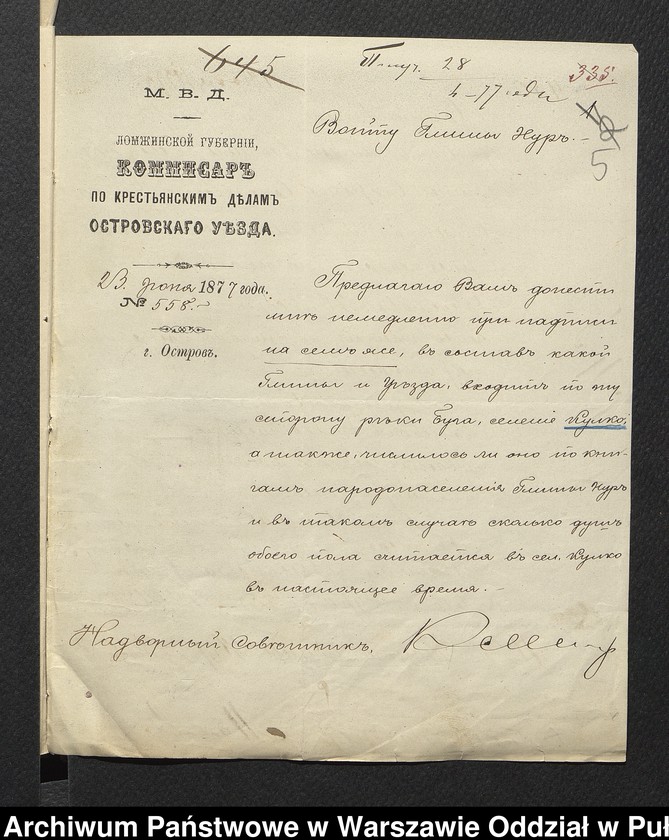 645
Получ. 28
335.
5
М. В. Д.
ЛОМЖИНСКОЙ ГУБЕРНІИ,
КОММИСАРЪ
ПО КРЕСТЬЯНСКИМЪ ДѢЛАМЪ
ОСТРОВСКАГО УѢЗДА.
23 Іюня 1877 года.
№ 558.
г. Островъ.
Войту Гмины Нуръ.
Предлагаю Вамъ донести
мнѣ немедленно при надписи
на семъ же, въ составъ какой
Гмины и Уѣзда, входитъ по ту
сторону рѣки Буга, селеніе Кулко,
а также, числилось ли оно по кни-
гамъ народонаселенія Гмины Нуръ
и въ такомъ случаѣ сколько душъ
обоего пола считается въ сел. Кулко
въ настоящее время.
Надворный Совѣтникъ,
Archiwum Państwowe w Warszawie Oddział w Pu